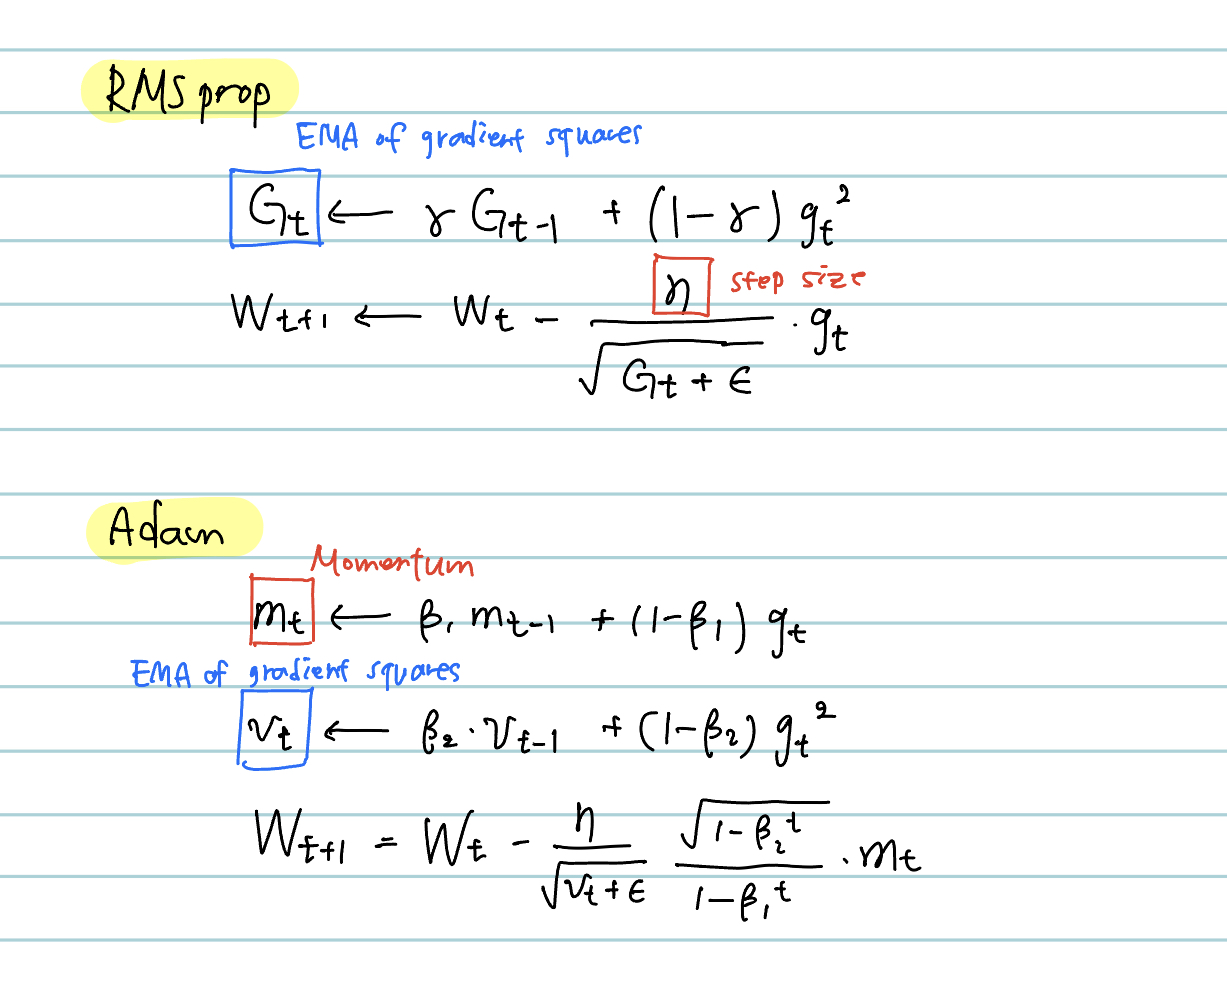 RMSprop
EMA of gradient squares
G_t ← γ G_{t-1} + (1-γ) g_t^2
η step size
W_{t+1} ← W_t - η / √(G_t + ϵ) · g_t
Adam
Momentum
m_t ← β_1 m_{t-1} + (1-β_1) g_t
EMA of gradient squares
v_t ← β_2 · v_{t-1} + (1-β_2) g_t^2
W_{t+1} = W_t - η / √(v_t + ϵ) √(1-β_2^t) / (1-β_1^t) · m_t